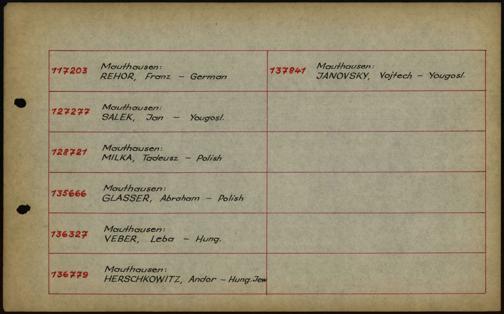 117203 Mauthausen:
REHOR, Franz - German
127277 Mauthausen:
SALEK, Jan - Yougosl.
128721 Mauthausen:
MILKA, Tadeusz - Polish
135666 Mauthausen:
GLASSER, Abraham - Polish
136327 Mauthausen:
VEBER, Leba - Hung.
136779 Mauthausen:
HERSCHKOWITZ, Andor - Hung.Jew
137841 Mauthausen:
JANOVSKY, Vojtech - Yougosl.